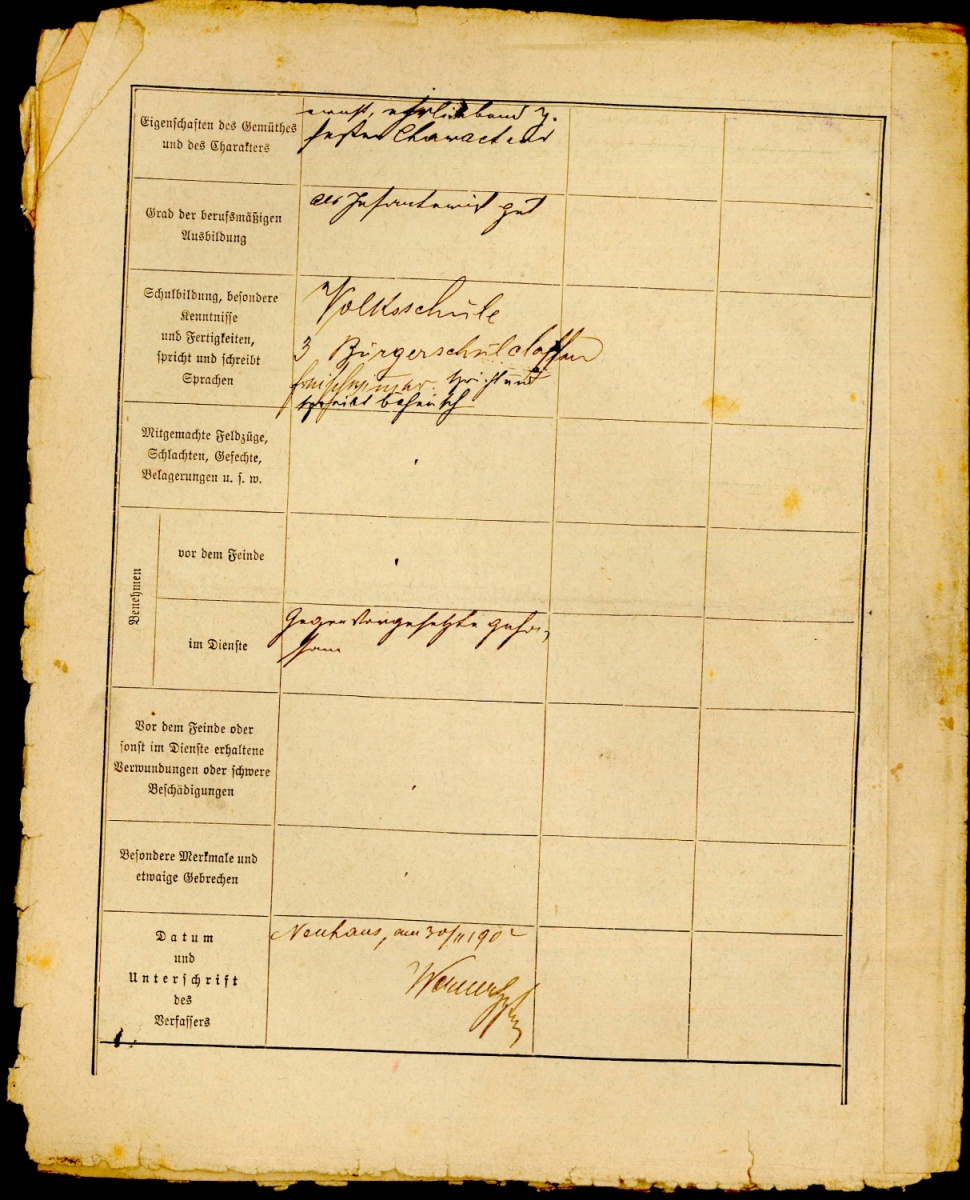 Eigenschaften des Gemüthes
und des Charakters
ernst, ehrliebend u.
fester Character
Grad der berufsmäßigen
Ausbildung
als Infanterist gut
Schulbildung, besondere
Kenntnisse
und Fertigkeiten,
spricht und schreibt
Sprachen
Volksschule
3 Bürgerschulclassen
spricht und
schreibt böhmisch
Mitgemachte Feldzüge,
Schlachten, Gefechte,
Belagerungen u. s. w.
Benehmen
vor dem Feinde
im Dienste
Gegen Vorgesetzte gehor-
sam
Vor dem Feinde oder
sonst im Dienste erhaltene
Verwundungen oder schwere
Beschädigungen
Besondere Merkmale und
etwaige Gebrechen
Datum
und
Unterschrift
des
Verfassers
Neuhaus, am 30/11 1902